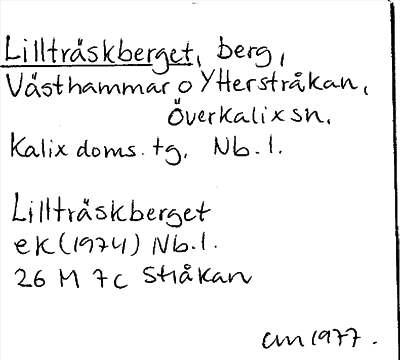 Lillträskberget, berg,
Västhammar o Ytterstråkan,
Överkalix sn,
Kalix doms. tg, Nb. l.
Lillträskberget
ek (1974) Nb. l.
26 M 7 c Stråkan
cm 1977.